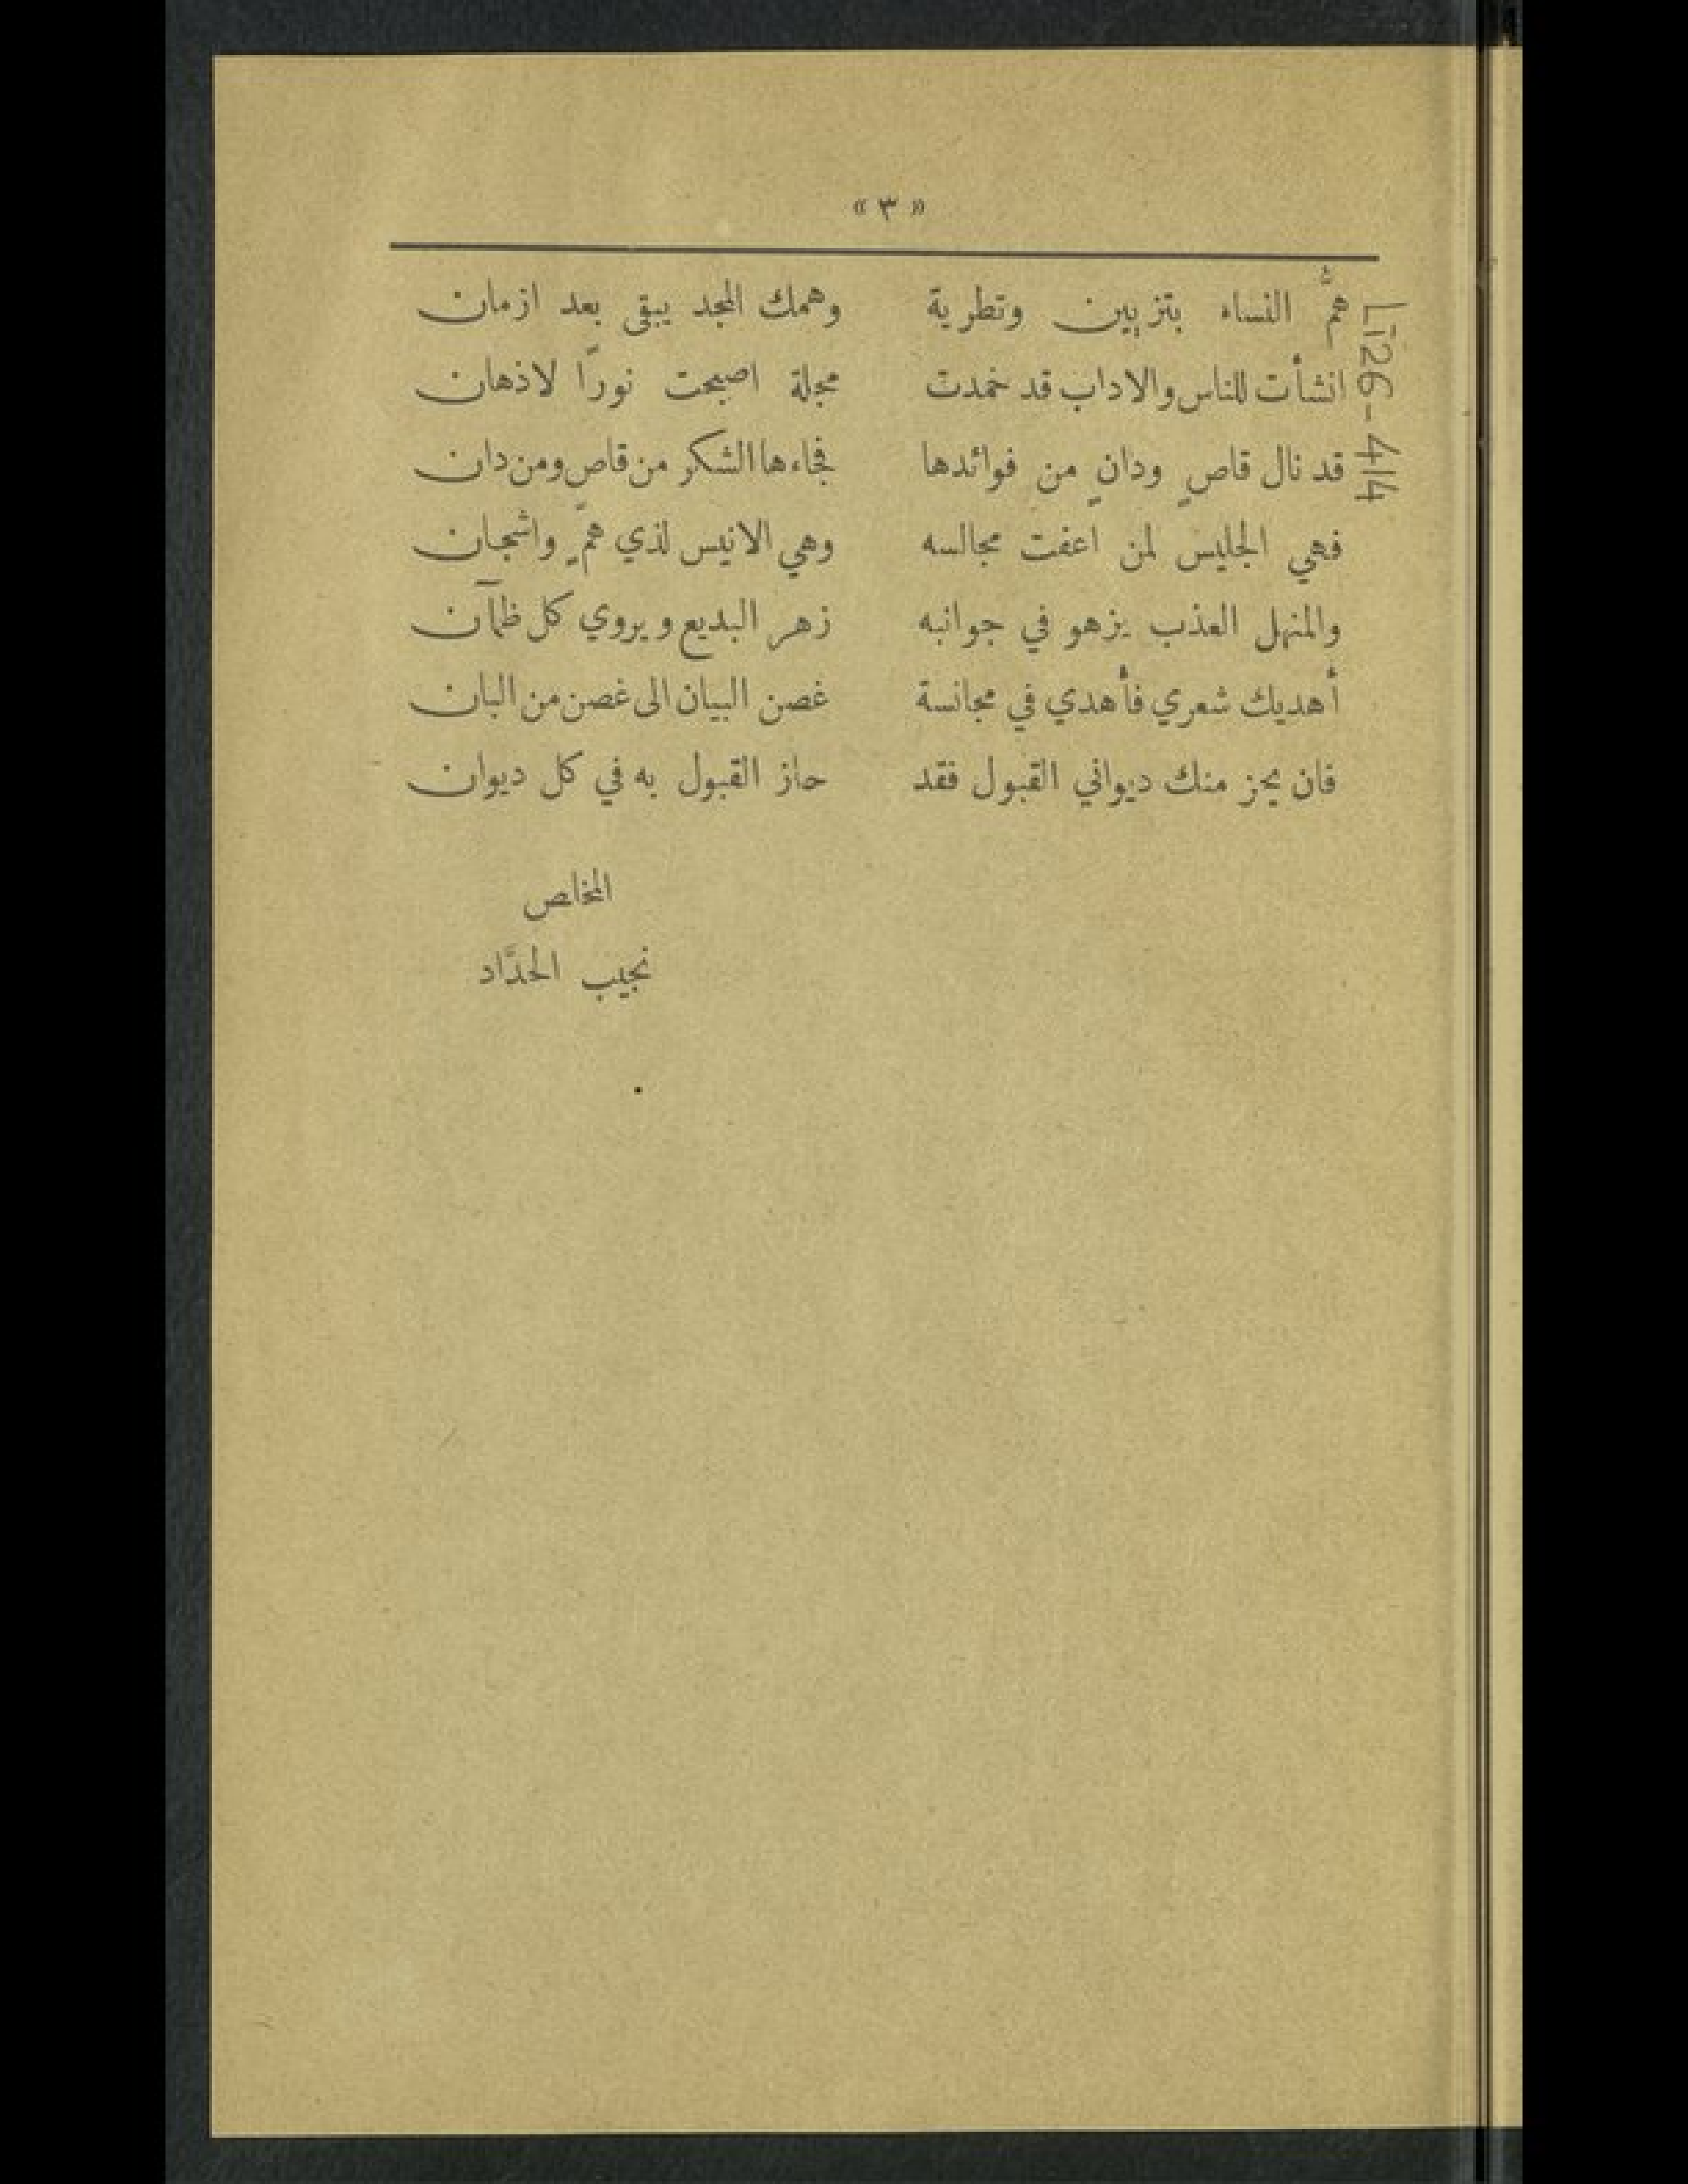 « ٣ »
همُّ النساء بتزيين وتطرية وهمك المجد يبقى بعد ازمان
انشأت للناس والاداب قد خمدت مجلة اصبحت نورًا لاذهان
قد نال قاصٍ ودانٍ من فوائدها فجاءها الشكر من قاصٍ ومن دان
فهي الجليس لمن اعفت مجالسه وهي الانيس لذي همٍّ واشجان
والمنهل العذب يزهو في جوانبه زهر البديع ويروي كل ظمآن
أهديك شعري فأهدي في مجانسة غصن البيان الى غصن من البان
فان يحز منك ديواني القبول فقد حاز القبول به في كل ديوان
المخلص
نجيب الحدَّاد
L126-414